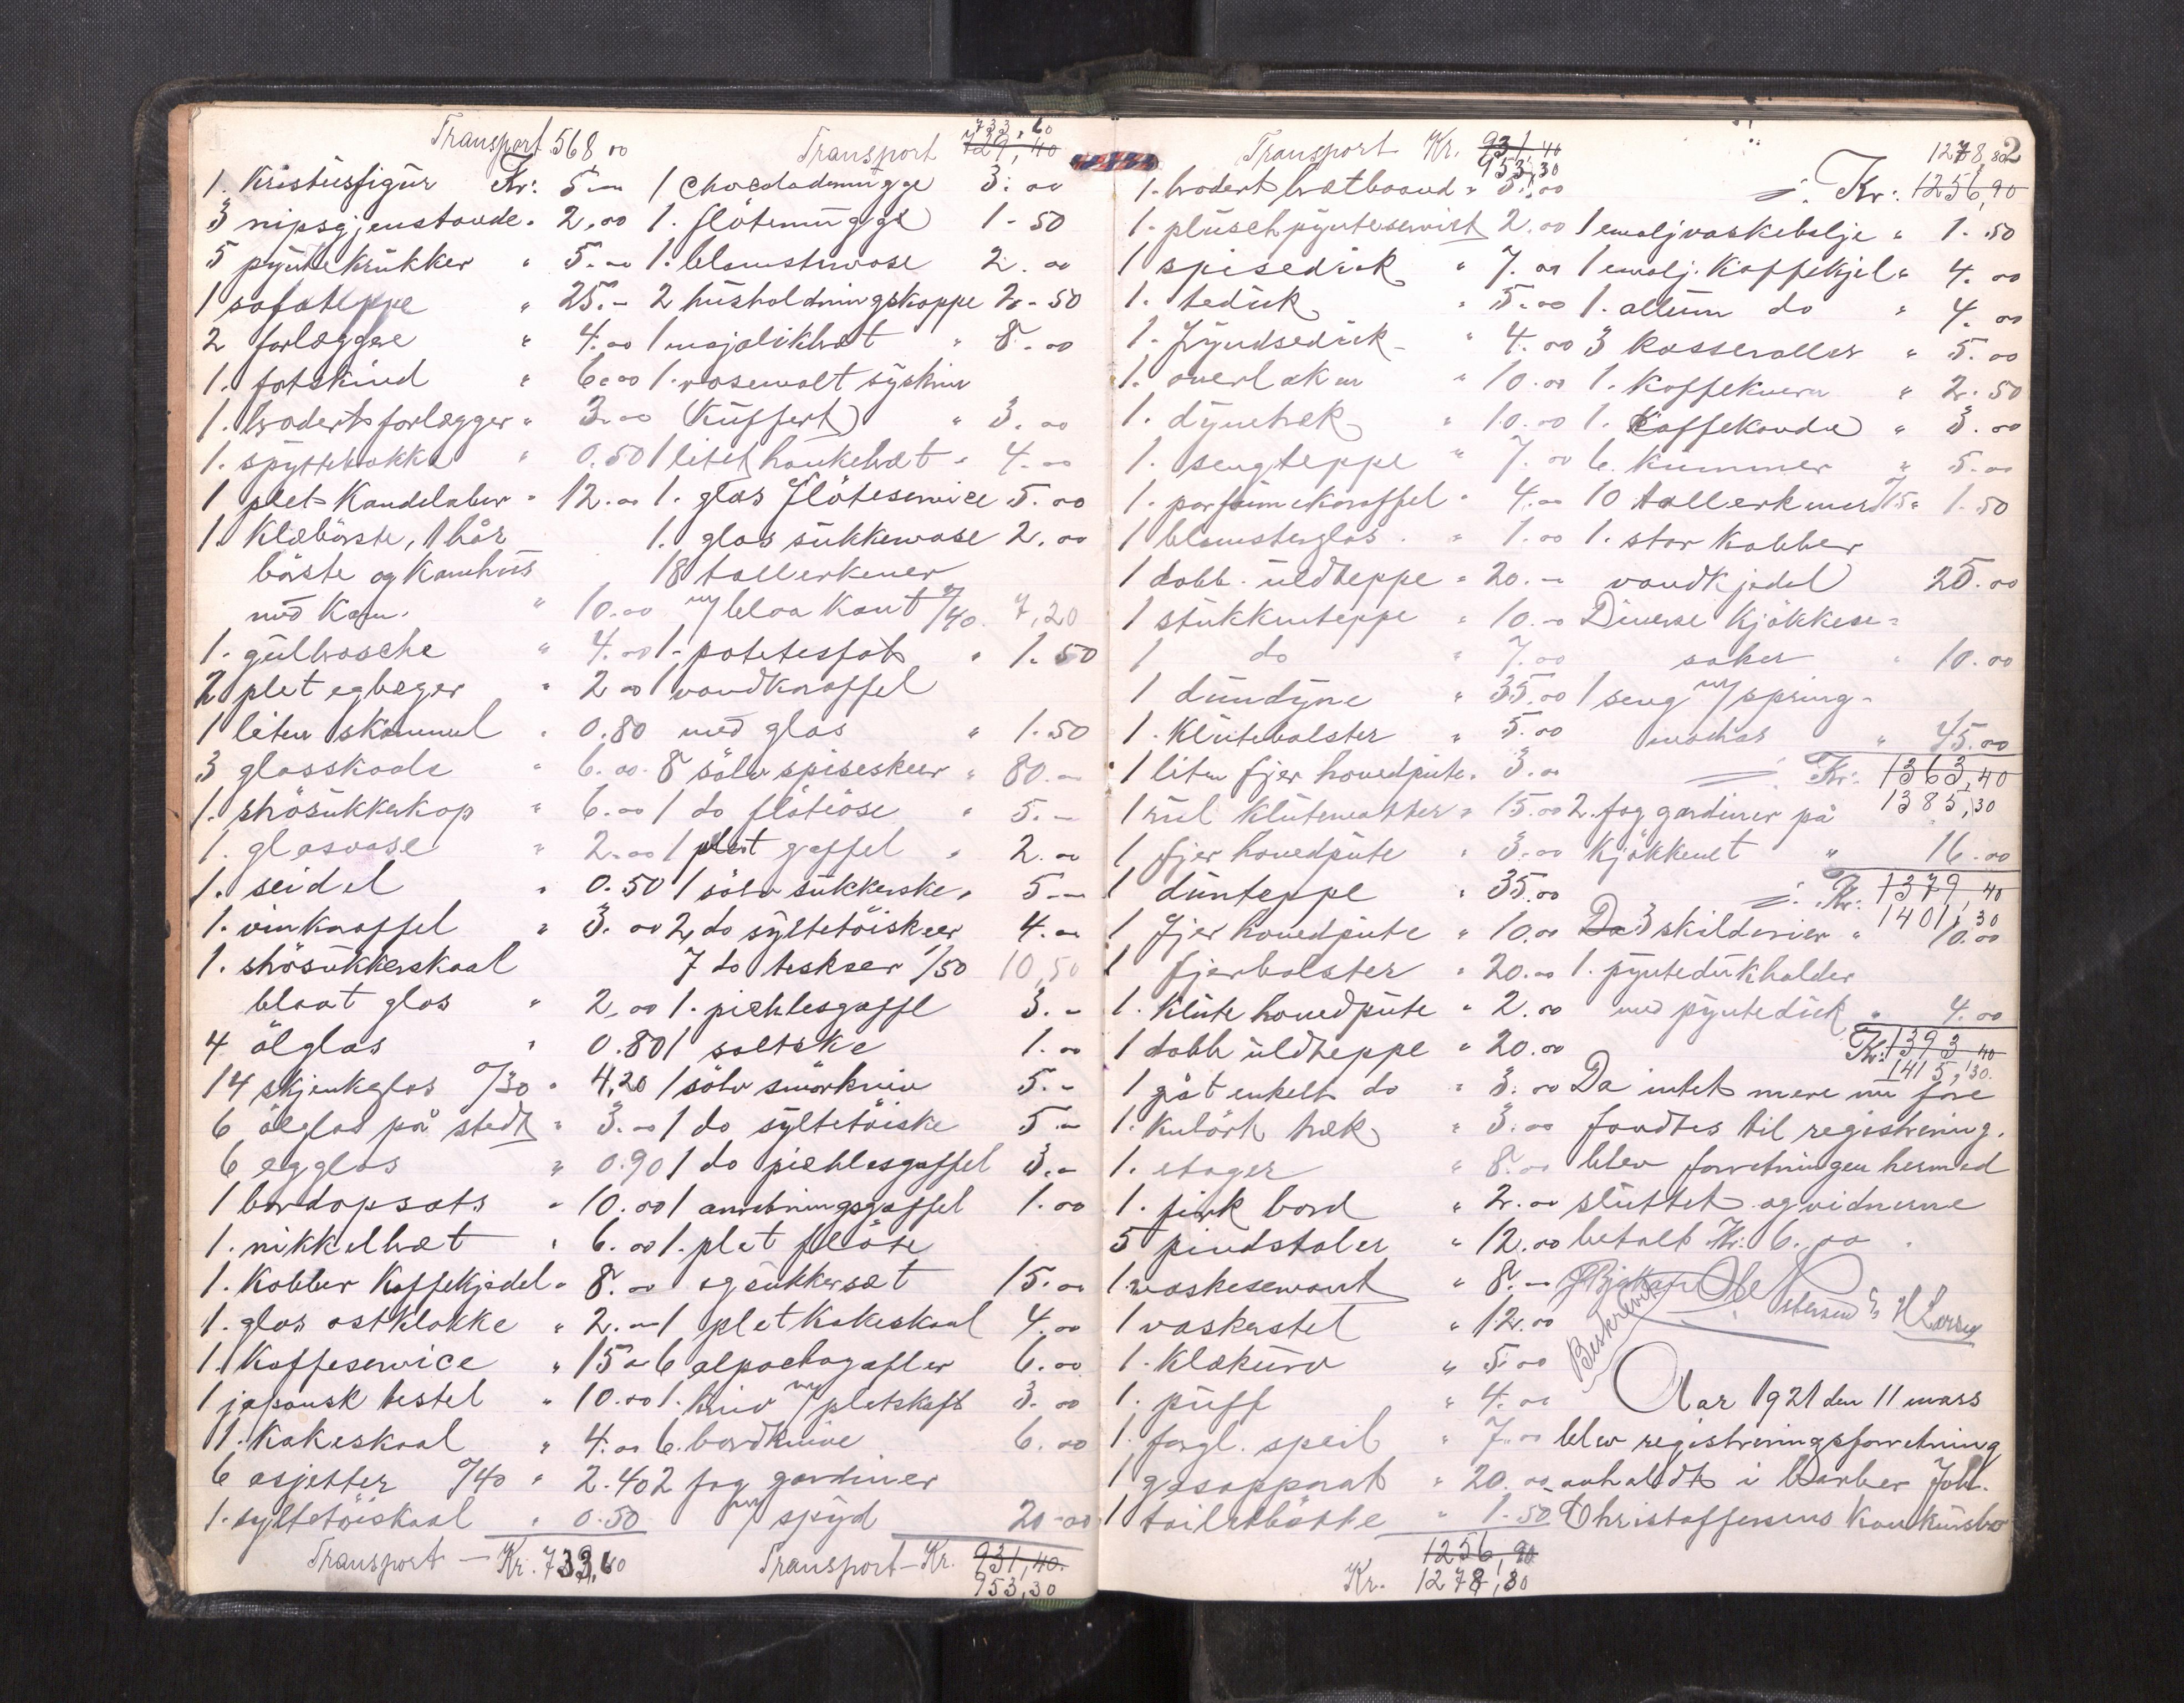 Transport 568.00
1. Kristusfigur Kr: 5.-
3 nipsgjenstande " 2,00
5 pyntekrukker " 5.-
1 sofateppe " 25.-
2 forlæggere " 4.00
1. fotskind " 6.00
1. brodert forlægger " 3.00
1. spyttebakke " 0.50
1 plet Kandelaber " 12.00
1. Klæbörste, 1 hår
börste og Kamhus
med Kam. " 10.00
1. gulbroche " 4.00
2 plet egbæger " 2 00
1 liten skammel " 0.80
3 glasskaale " 6.00
1. strösukkerkop " 6.00
1. glasvase " 2.00
1. seidel " 0.50
1. vinkaraffel " 3.00
1. strösukkerskaal
blaat glas " 2,00
4 ölglas " 0.80
14 skjenkeglas a/30 " 4,20
6 ölglas på stedt " 3.00
6 egglas " 0.90
1 bordopsats " 10.00
1. nikkelbræt " 6.00
1. Kobber Kaffekjedel " 8.00
1. glas ostklokke " 2.-
1. Kaffeservice " 15 00
1 japansk testel " 10.00
1. Kakeskaal " 4.00
6 asjetter a/40 " 2.40
1. syltetöiskaal " 0.50
Transport - Kr. 733,60
733,60
Transport 729,40
1 chocolademugge 3.00
1. flötemugge 1-50
1. blomstervase 2.00
2 husholdningskoppe 2-50
1 majolikbræt " 8.00
1. rosemalt syskrin
(Kuffert) " 3.00
1 litet hankebræt " 4.00
1. glas flöteservice 5.00
1. glas sukkervase 2.00
18 tallerkener
m/ blaa kant a/40. 7,20
1. potetesfat " 1.50
1 vandkaraffel
med glas " 1.50
8 sölv spiseskeer " 80.-
1 do flöteöse " 5.-
1 plet gaffel " 2.00
1 sölv sukkerske " 5.-
2 do syltetöiskeer 4.00
7 do teskeer 1/50 10,50
1. picklesgaffel 3.-
1 saltske 1.00
1 sölv smörkniv 5.-
1 do syltetöiske 5.-
1 do picklesgaffel 3.-
1 anretningsgaffel 1.00
1. plet flöte
og sukkersæt 15.00
1 plet Kakeskaal 4.00
6 alpaccagafler 6.00
1. kniv m/ pletskaft 3.00
6. bordknive 6.00
2 fag gardiner
m/ spyd 20-00
Transport - Kr. 931,40.
953,30
Transport Kr. 931 40
953,30
1. brodert brætbaand " 3.00
1. plüsch pynteserviet 2.00
1 spisedúk " 7.00
1. tedúk " 5.00
1. Pyndsedúk " 4.00
1. overlaken " 10.00
1. dynetræk " 10.00
1. sengteppe " 7.00
1. parfumekaraffel " 4.00
1 blomsterglas " 1.00
1 dobb. uldteppe " 20.-
1 stukkenteppe " 10.00
1 do " 7.00
1 dundyne " 35.00
1. Klutebolster " 5.00
1 liten fjer hovedpute " 3.00
1 rul Klutematter " 15.00
1 fjer hovedpute " 3.00
1 dunteppe " 35.00
1 fjer hovedpute " 10.00
1 fjerbolster " 20.00
1. Klute hovedpute " 2.00
1 dobb uldteppe " 20.00
1 gåt enkelt do " 3.00
1. Kulört træk " 3.00
1. etager " 8.00
1. pirk bord " 2.00
5 pindstoler " 12.00
1. vaskeservant " 8.-
1 vaskestel " 12.00
1. Klækurv " 5.00
1. puff " 4.00
1. forgl. speil " 7.00
1 gasapparat " 20.00
1 toiletbötte " 1.50
1256,90
Kr. 1278,80
2
1278,80
Kr: 1256,90
1 emaljvaskebalje " 1.50
1 emalj. Kaffekjel " 4.00
1. allum do " 4.00
3 kasseroller " 5.00
1. Kaffekvern " 2.50
1. Kaffekande " 3.00
6. Kummer " 5.00
10 tallerkener a/15 " 1.50
1. stor Kobber
vandkjedel 25.00
Diverse Kjökkese=
saker " 10.00
1 seng m/ spring-
madras " 45.00
Kr: 1363,40
1385,30
2. fag gardiner på
Kjökkenet " 16.00
Kr: 1379,40
1401,30
Da 3 skilderier " 10.00
1. pyntedúkholder
med pyntedúk " 4.00
Kr: 1393 40
1415,30.
Da intet mere nu fore
fandtes til registrering.
blev forretningen hermed
sluttet og vidnerne
betalt Kr: 6.00.
H Larsen
Beskrevet
Aar 1921 den 11 mars
blev registreringsforretning
avholdt i Barber Joh.
Christoffersens Konkursbo